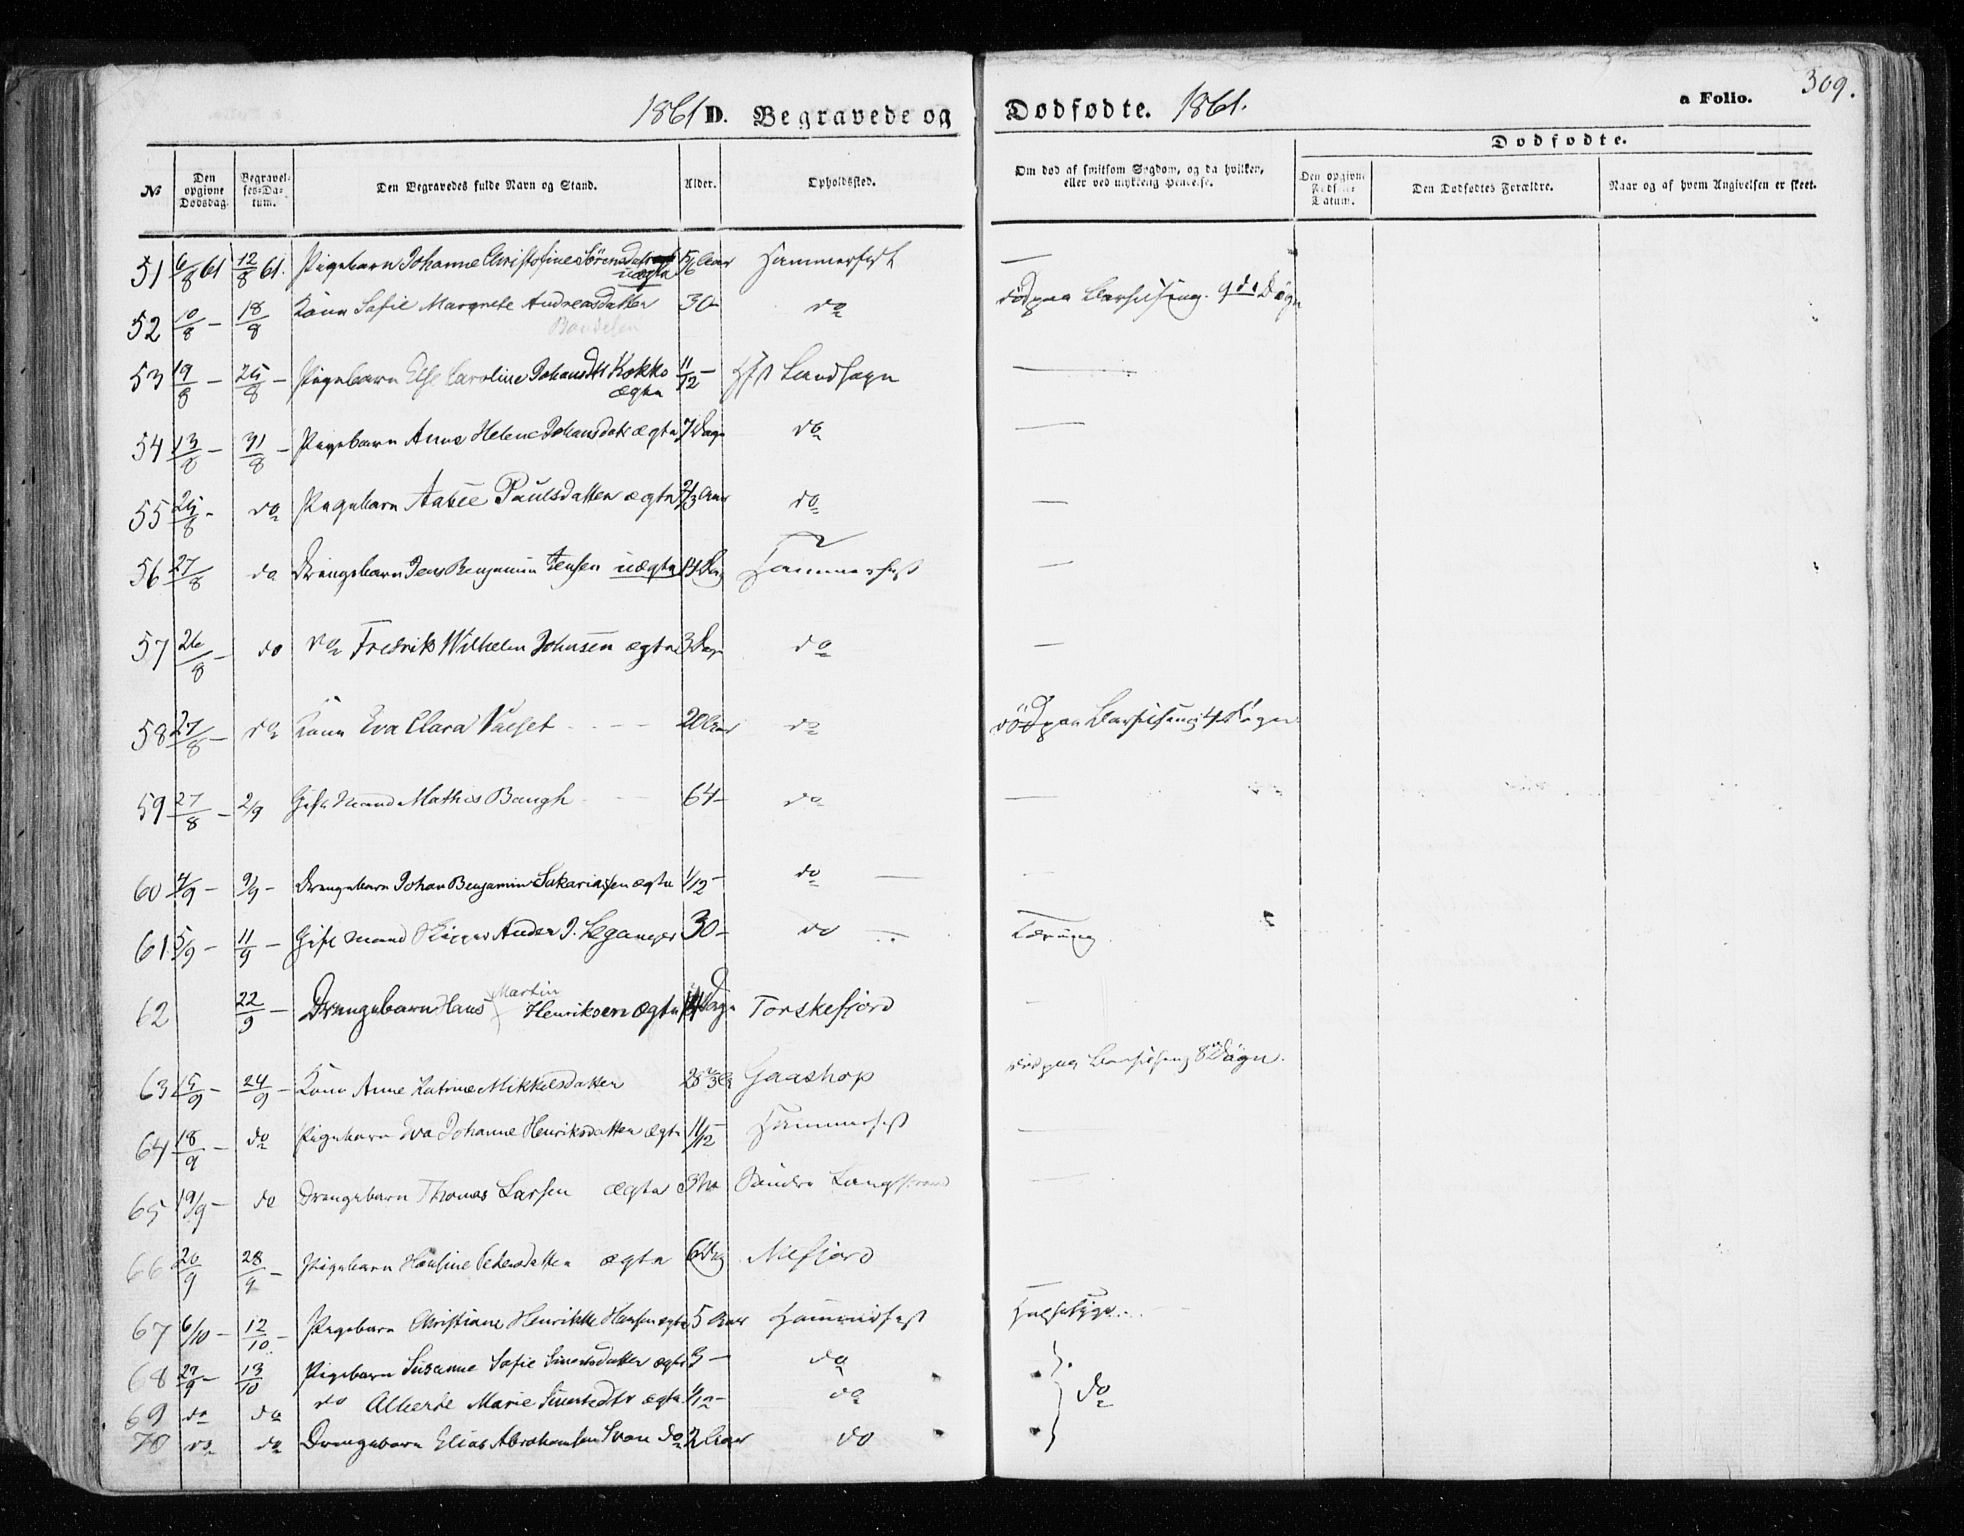 1861 D. Begravede og Dødfødte. 1861. a Folio. 309.
Dødfødte.
№ Den opgivne Dødsdag. Begravelses-Datum. Den Begravedes fulde Navn og Stand. Alder. Opholdssted. Om død af smitsom Sygdom, og da hvilken, eller ved ulykkelig Hændelse. Den opgivne Fødsels-Datum. Den Dødfødtes Forældre. Naar og af hvem Angivelsen er skeet.
51 6/8 61 12/8 61. Pigebarn Johanne Christofine Sørensdatter 5/6 Aar Hammerfest —
uægte
52 10/8 – 18/8 Kone Sofie Margrete Andreasdatter 30– do død paa Barselseng. 9de Døgn
53 19/8 – 25/8 – Pigebarn Else Caroline Johansdtr Kokko 11/12 – Hfst Landsogn —
ægte
54 13/8 – 31/8 – Pigebarn Anne Helene Johansdatr ægte 7 Dage do —
55 25/8 – do Pigebarn Paulsdatter ægte 2/3 Aar do —
56 27/8 do Drengebarn Jens Benjamin Jensen uægte 14 Dag Hammerfest —
57 26/8 – do do Fredrik Wilhelm Johnsen ægte 3 Dage do —
58 27/8 – do Kone Eva Clara 20 Aar do død paa Barselseng 4 Døgn
59 27/8 – 2/9 Gift Mand Mathis Bangh 64– do —
60 4/9 – 9/9 – Drengebarn Johan Benjamin Sakariassen ægte 1/12 – do —
61 5/9 – 11/9 – Gift Mand Anders J. 30– do Tæring
62 22/9 – Drengebarn Hans Martin Henriksen ægte 14 Dage Torskefjord –
63 15/9 – 24/9 – Kone Anne Katrine Mikkelsdatter Gaashop død paa Barselseng 8 Døgn.
64 18/9 – do Pigebarn Eva Johanne Henriksdatter ægte 11/12 – Hammerfest —
65 19/9 – do Drengebarn Thomas Larsen ægte Søndre Langstrand —
66 20/9 28/9 – Pigebarn Hansine Pedersdatter ægte 6 Dag —
67 6/10 – 12/10 – Pigebarn Christiane Henrikke Hansen ægte 5 Aar Hammerfest Halssyge
68 29/9 – 13/10 Pigebarn Susanne Sofie ægte 3 – do
69 do do do Alberte Marie ægte 1/12 – do do
70 do do Drengebarn Elias Abrahamsen do 2 Aar do